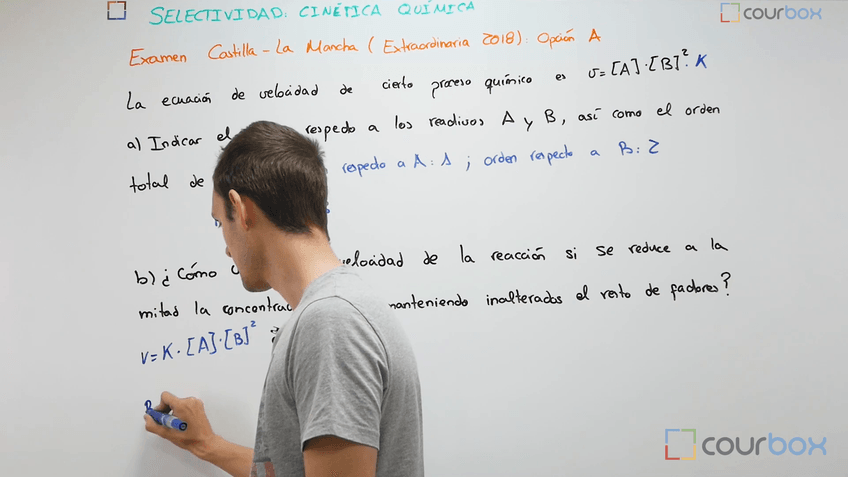 SELECTIVIDAD: CINÉTICA QUÍMICA
courbox
Examen Castilla-La Mancha (Extraordinaria 2018): Opción A
La ecuación de velocidad de cierto proceso químico es v=[A]·[B]²·K
a) Indicar el respecto a los reactivos A y B, así como el orden
total de respecto a A: 1 ; orden respecto a B: 2
b) ¿Cómo velocidad de la reacción si se reduce a la
mitad la manteniendo inalterados el resto de factores?
v=K·[A]·[B]²
courbox